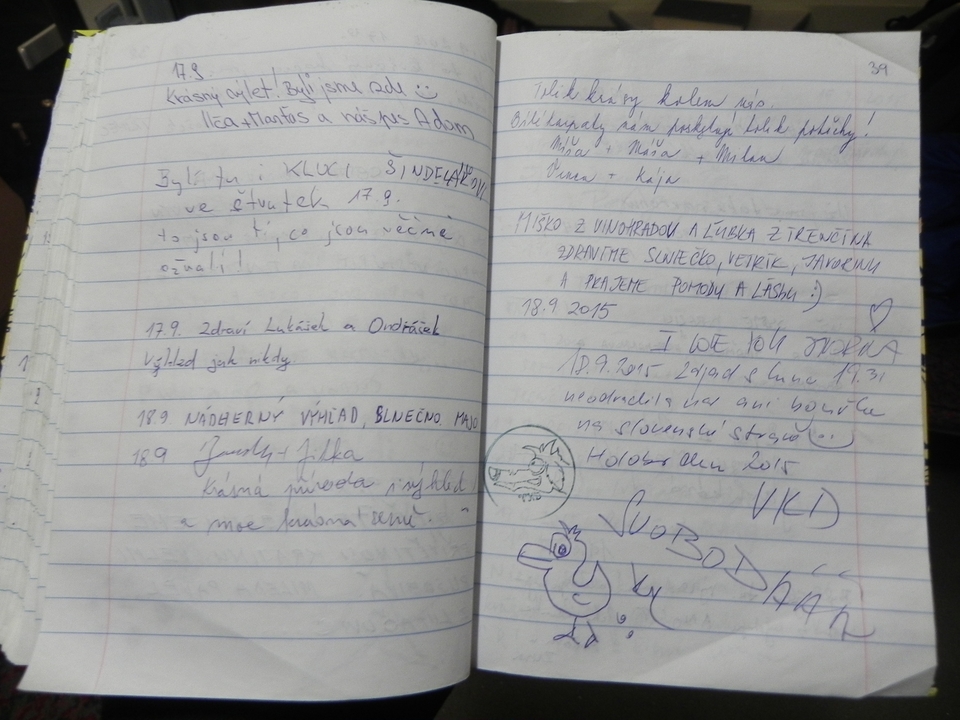 17.9
Krásný výlet! Byli jsme zde
Ilča + Mantas a náš pes Adam
Byli tu i KLUCI ŠINDELÁŘOVI
ve čtvrtek 17.9.
to jsou ti, co jsou věčně
ožralí!
17.9. Zdraví Lukášek a Ondrášek
výhled jak nikdy
18.9 NÁDHERNÝ VÝHĽAD, SLNEČNO. MAJO
18.9 Jilka
Krásná příroda i výhled
a moc krásná země.
39
Tolik krásy kolem nás.
Bílé karpaty nám poskytují tolik potěchy!
Míša + Máša + Milan
+ Kája
MIŠKO Z VINOHRADOV A ĽUBKA Z TRENČÍNA
ZDRAVÍME SLNIEČKO, VETRÍK, JAVORINU
A PRAJEME POHODU A LÁSKU :)
18.9 2015
I LOVE YOU
18.9.2015 západ slunce 19.31
neodradila nás ani bouřka
na slovenské straně
2015
VKD
SVOBODÁÁÁ